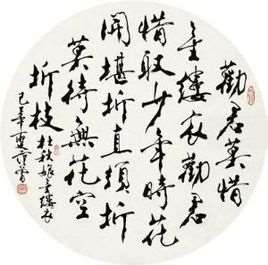 勸君莫惜
金縷衣勸君
惜取少年時花
開堪折直須折
莫待無花空
折枝 杜秋娘金縷衣
己